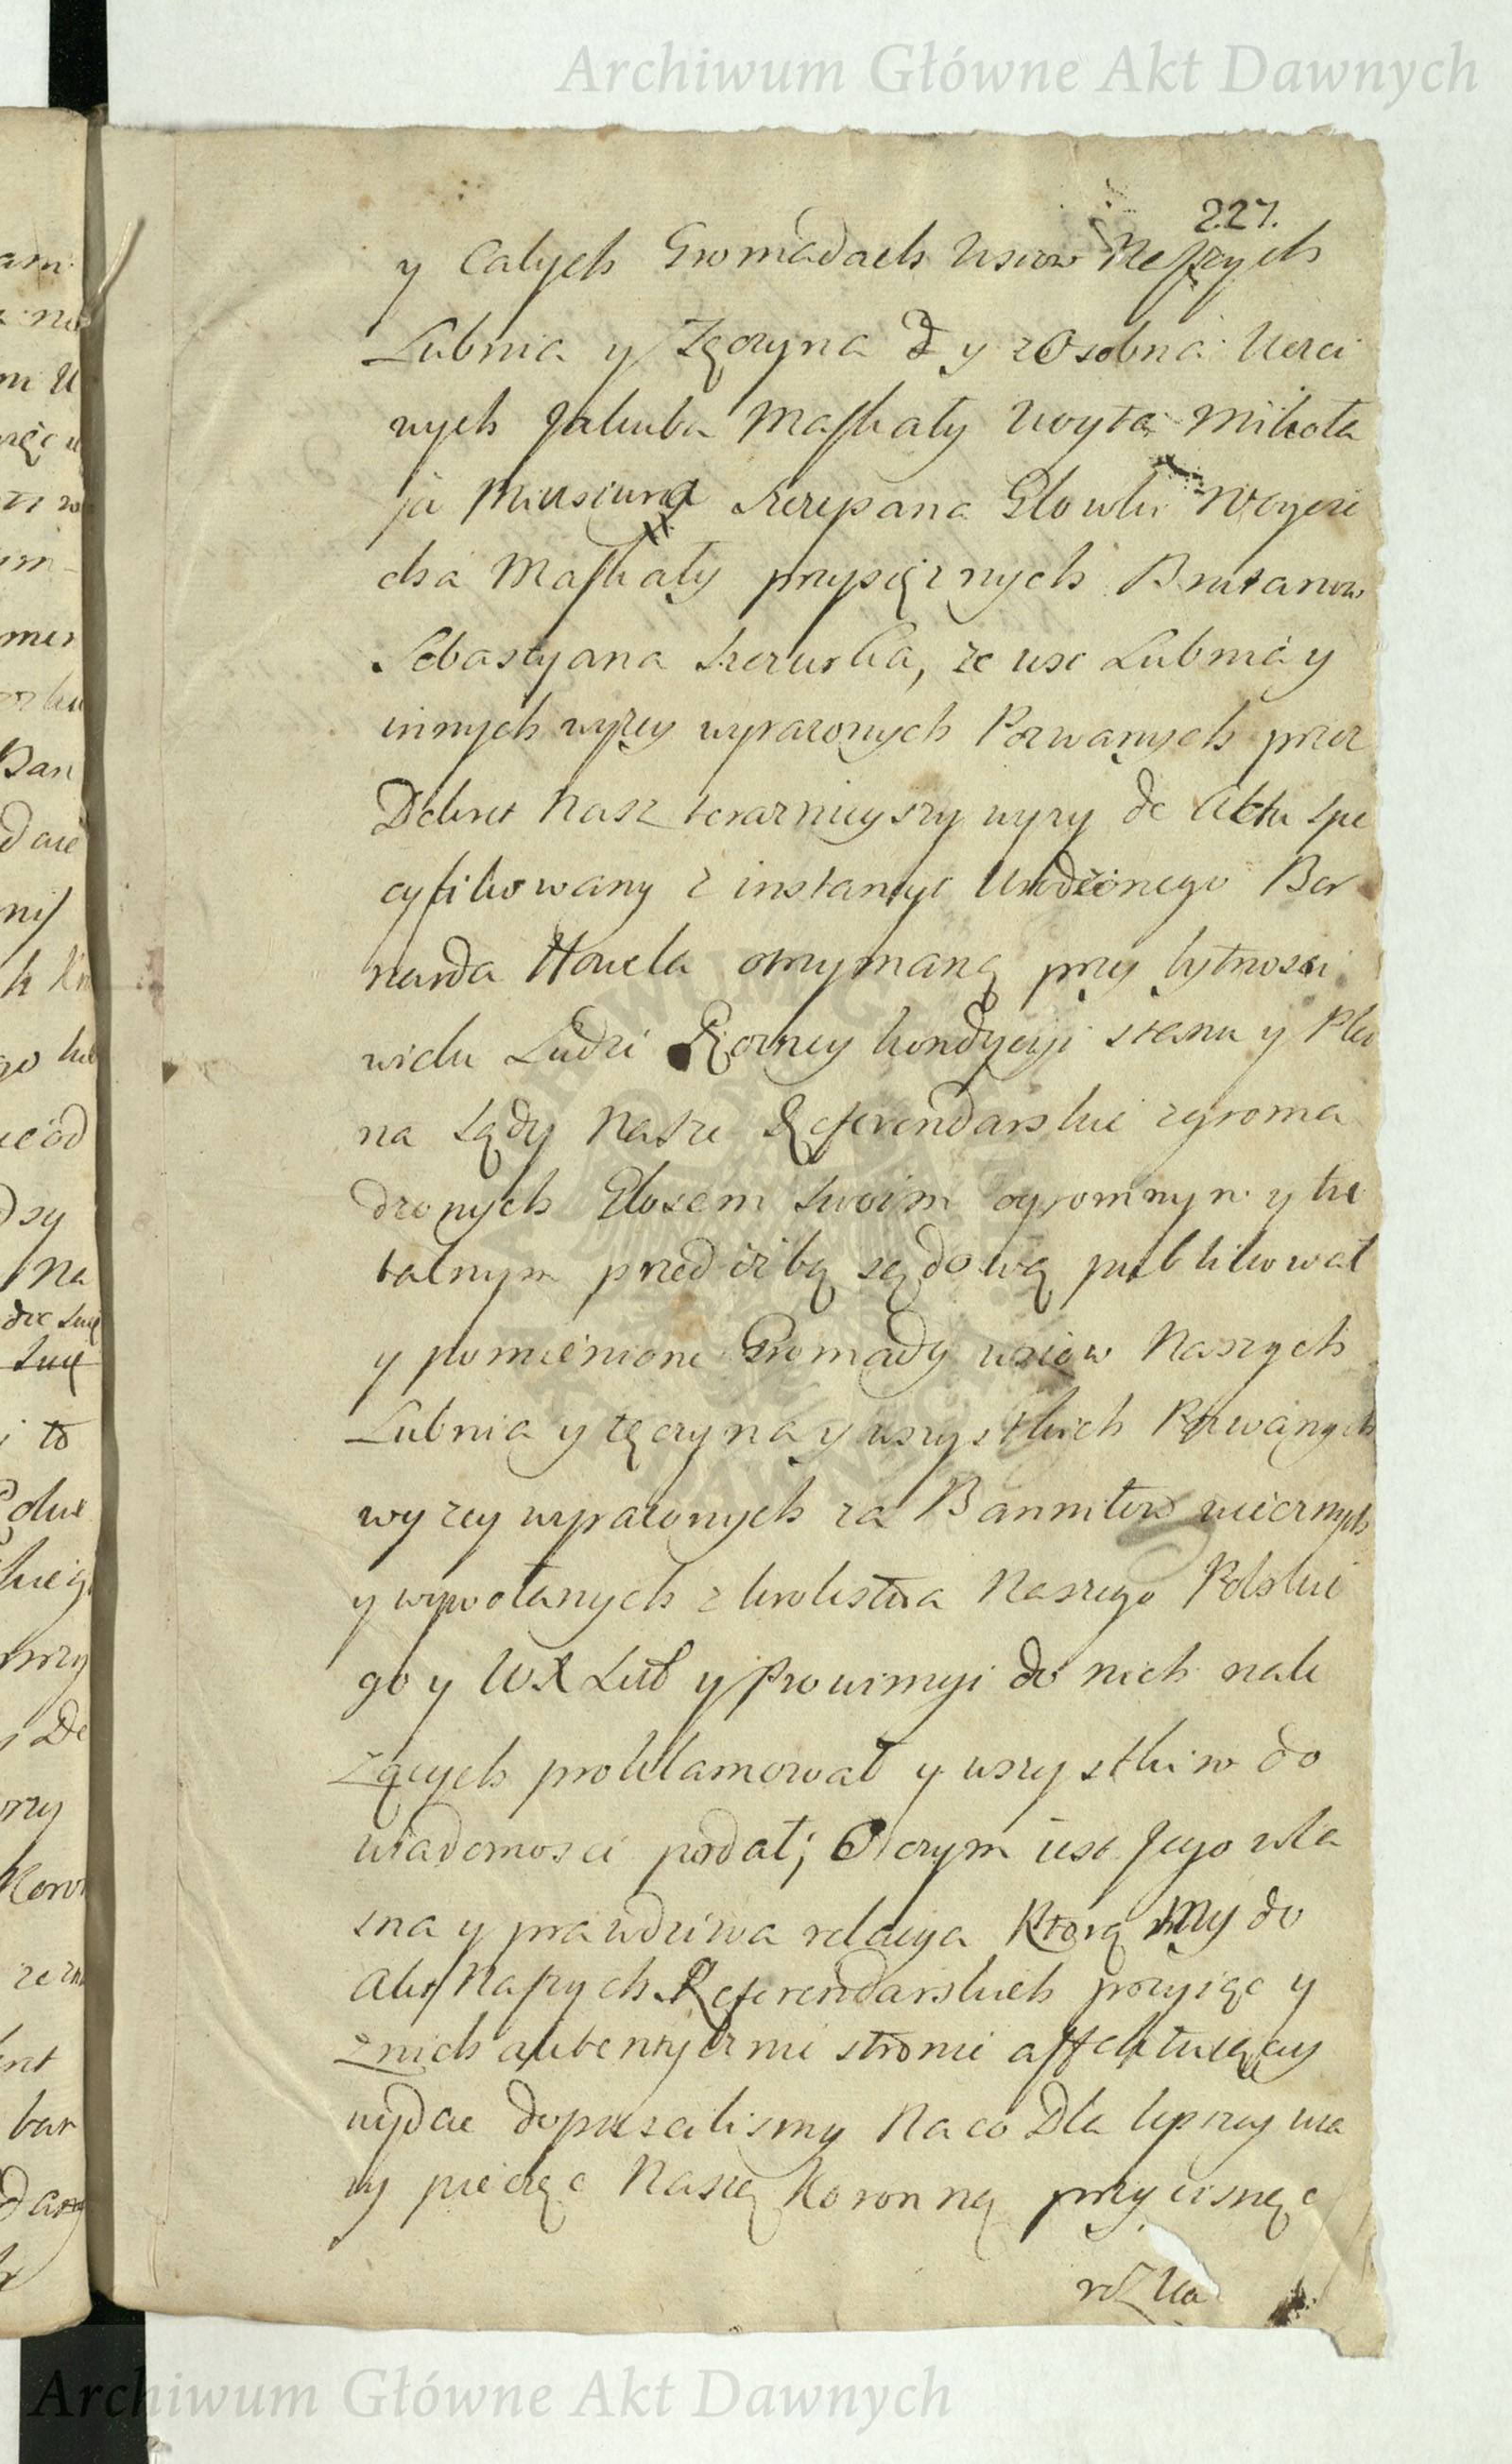 Archiwum Główne Akt Dawnych
227.
y Całych Gromadach wsiow Naszych
Lubnia y Tęczyna & y zosobna Ucci
wych Jakuba Maskały woyta Mikoła
ja Szczepana Głowki Woycie
cha Maskały przysięznych
Sebastyana ze wsi Lubnia y
innych wyzey wyrazonych Pozwanych przez
Dekret Nasz teraznieyszy wyzy de Actu spe
cyfikowany z instancyi Urodzonego Ber
narda otrzymaną przy bytnosci
wielu Ludzi Rozney kondycyi stanu y Płci
na sądy Nasze Referendarskie zgroma
dzonych Głosem swoim ogromnym y
talnym przed izbą sądową publikował
y pomienione Gromady wsiow Naszych
Lubnia y tęczyna y wszystkich Pozwanych
wyzey wyrazonych za Bannitow wiecznych
y wywołanych z krolestwa Naszego Polskie
go y WX Lit y Prowincyi do nich nale
zących proklamował y wszystkim do
wiadomosci podał; O czym iest Jego wła
sna y prawdziwa relacya Ktorą My do
Akt Naszych Referendarskich przyiąc y
znich autentycznie stronie affektuiącey
wydac dopuscilismy Na co Dla lepszey wia
ry pieczęc Naszą Koronną przycisnąc
rozka
Archiwum Główne Akt Dawnych